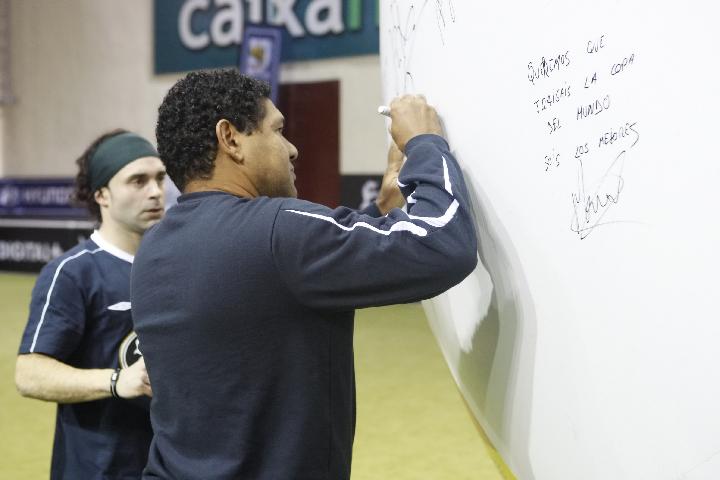 caixa
HYUNDAI
DIGITAL+
QUEREMOS QUE
TRAIGAIS LA COPA
DEL MUNDO
SOIS LOS MEJORES